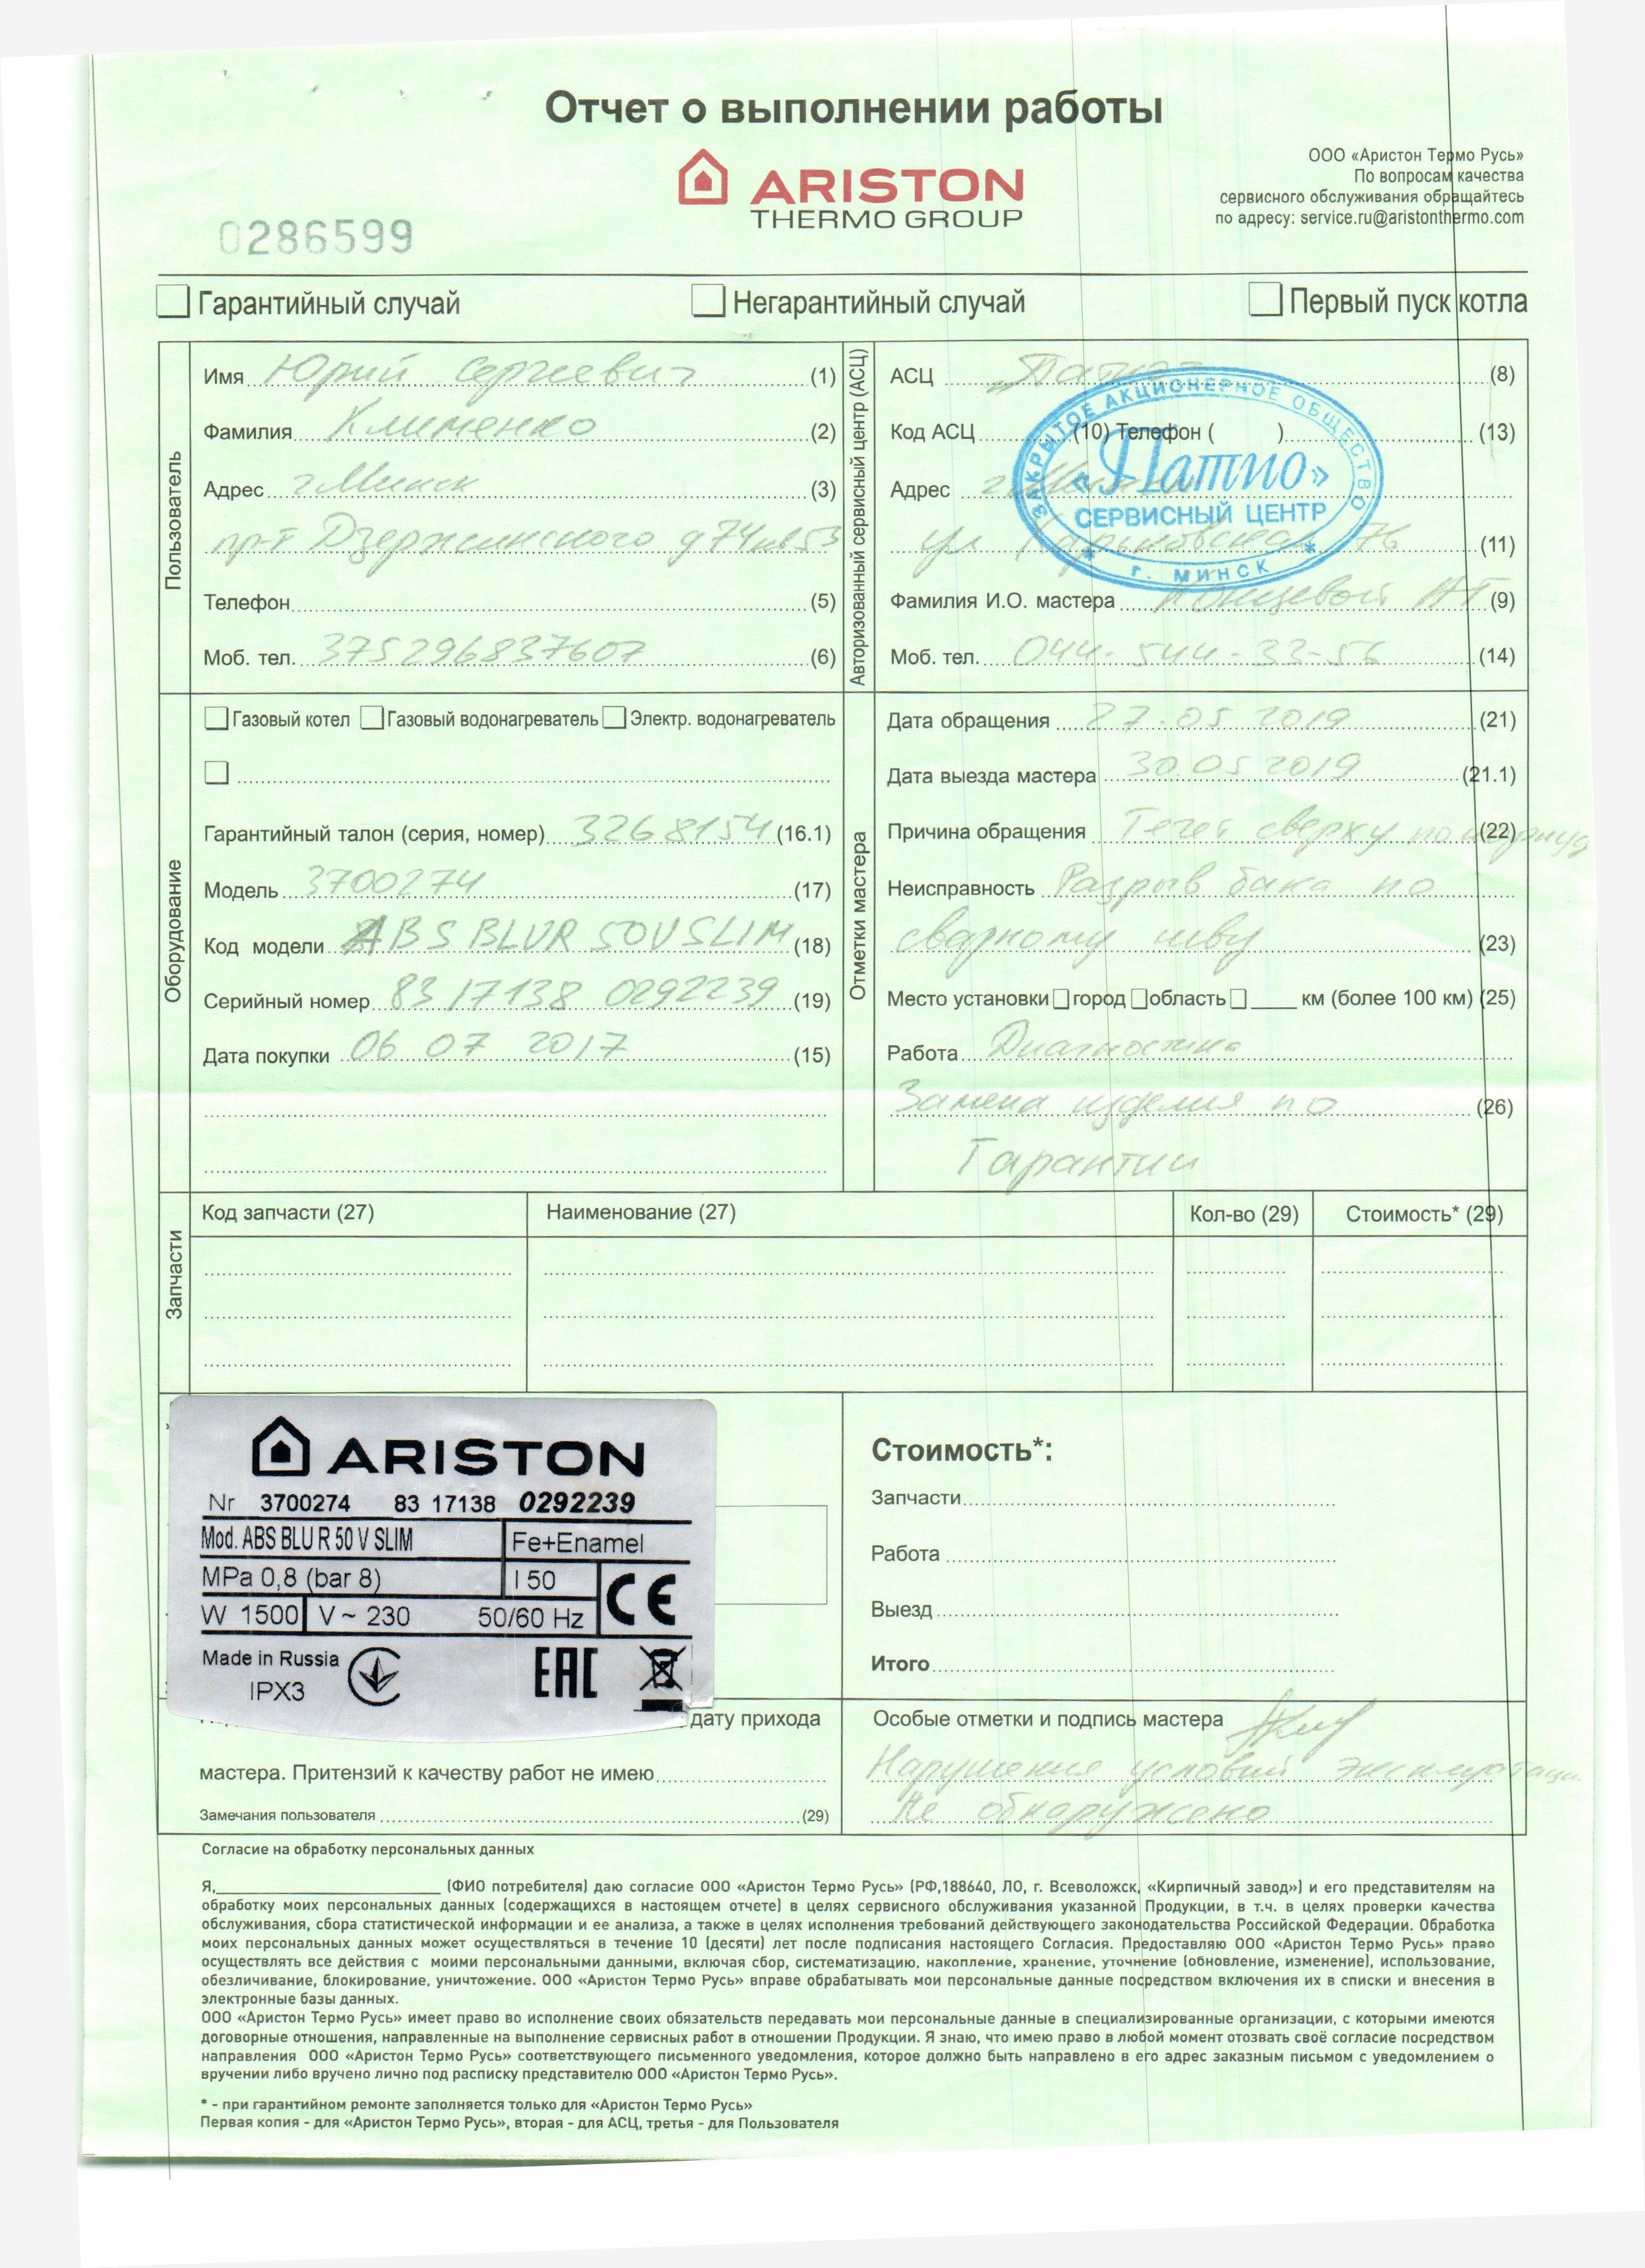 Отчет о выполнении работы
ARISTON
THERMO GROUP
ООО «Аристон Термо Русь»
По вопросам качества
сервисного обслуживания обращайтесь
по адресу: service.ru@aristonthermo.com
0286599
Гарантийный случай
Негарантийный случай
Первый пуск котла
Пользователь
Имя Юрий Сергиевич (1)
Фамилия Клименко (2)
Адрес г Минск (3)
пр-т Дзержинского д 74 кв 53
Телефон (5)
Моб. тел. 375296837607 (6)
Авторизованный сервисный центр (АСЦ)
АСЦ „Патио" (8)
Код АСЦ (10) Телефон ( ) (13)
Адрес г Минск
ул Харьковская 76 (11)
Фамилия И.О. мастера (9)
Моб. тел. 044-544-33-56 (14)
ЗАКРЫТОЕ АКЦИОНЕРНОЕ ОБЩЕСТВО
«Патио»
СЕРВИСНЫЙ ЦЕНТР
* г. МИНСК *
Оборудование
Газовый котел Газовый водонагреватель Электр. водонагреватель
Гарантийный талон (серия, номер) 3268154 (16.1)
Модель 3700274 (17)
Код модели ABS BLUR 50V SLIM (18)
Серийный номер 83 17138 0292239 (19)
Дата покупки 06 07 2017 (15)
Отметки мастера
Дата обращения 27.05 2019 (21)
Дата выезда мастера 30.05 2019 (21.1)
Причина обращения Течет сверху по (22)
Неисправность Разрыв бака по
сварному шву (23)
Место установки город область ____ км (более 100 км) (25)
Работа Диагностика
Замена изделия по (26)
Гарантии
Запчасти
Код запчасти (27) Наименование (27) Кол-во (29) Стоимость* (29)
ARISTON
Nr 3700274 83 17138 0292239
Mod. ABS BLU R 50 V SLIM Fe+Enamel
MPa 0,8 (bar 8) l 50
CE
W 1500 V~ 230 50/60 Hz
Made in Russia
IPX3
EAC
Стоимость*:
Запчасти
Работа
Выезд
Итого
дату прихода
мастера. Притензий к качеству работ не имею
Замечания пользователя (29)
Особые отметки и подпись мастера
Нарушения условий эксплуатации
не обнаружено
Согласие на обработку персональных данных
Я,____________________ (ФИО потребителя) даю согласие ООО «Аристон Термо Русь» (РФ,188640, ЛО, г. Всеволожск, «Кирпичный завод») и его представителям на
обработку моих персональных данных (содержащихся в настоящем отчете) в целях сервисного обслуживания указанной Продукции, в т.ч. в целях проверки качества
обслуживания, сбора статистической информации и ее анализа, а также в целях исполнения требований действующего законодательства Российской Федерации. Обработка
моих персональных данных может осуществляться в течение 10 (десяти) лет после подписания настоящего Согласия. Предоставляю ООО «Аристон Термо Русь» право
осуществлять все действия с моими персональными данными, включая сбор, систематизацию, накопление, хранение, уточнение (обновление, изменение), использование,
обезличивание, блокирование, уничтожение. ООО «Аристон Термо Русь» вправе обрабатывать мои персональные данные посредством включения их в списки и внесения в
электронные базы данных.
ООО «Аристон Термо Русь» имеет право во исполнение своих обязательств передавать мои персональные данные в специализированные организации, с которыми имеются
договорные отношения, направленные на выполнение сервисных работ в отношении Продукции. Я знаю, что имею право в любой момент отозвать своё согласие посредством
направления ООО «Аристон Термо Русь» соответствующего письменного уведомления, которое должно быть направлено в его адрес заказным письмом с уведомлением о
вручении либо вручено лично под расписку представителю ООО «Аристон Термо Русь».
* - при гарантийном ремонте заполняется только для «Аристон Термо Русь»
Первая копия - для «Аристон Термо Русь», вторая - для АСЦ, третья - для Пользователя